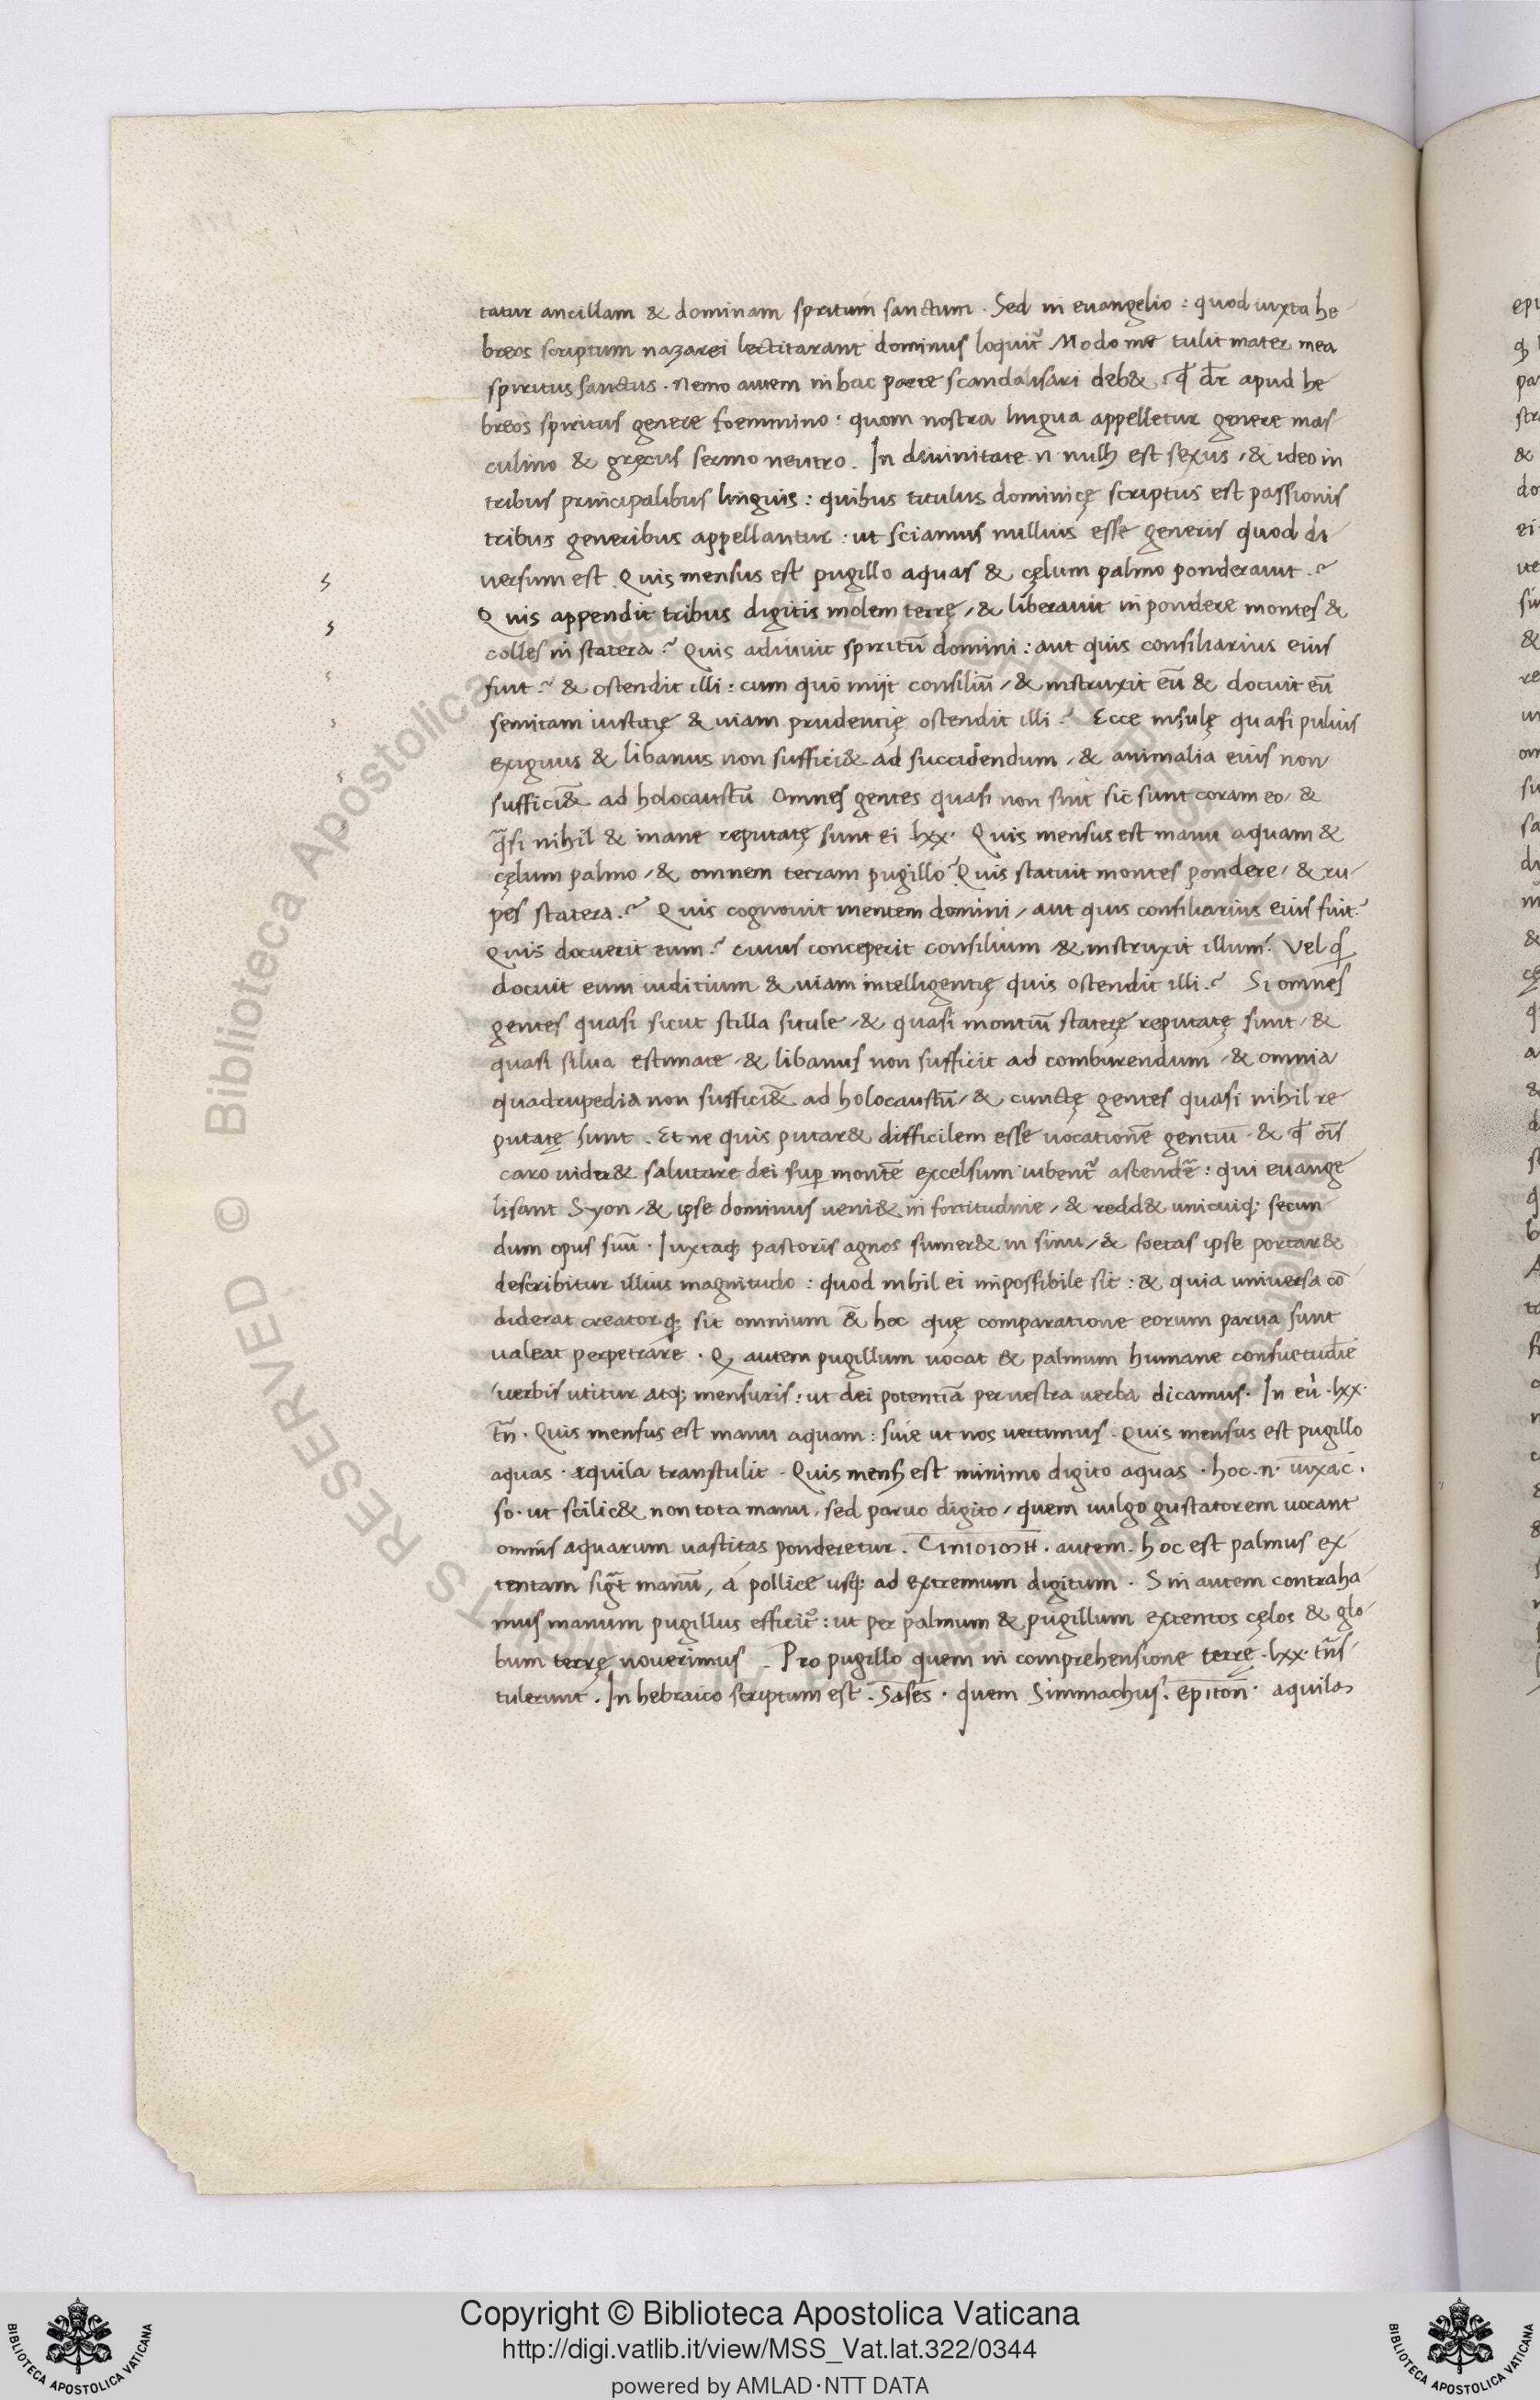 tatur ancillam & dominam spiritum sanctum . Sed in euangelio : quod iuxta he
breos scriptum nazarei lectitarant dominus loquit᷑ Modo me tulit mater mea
spiritus sanctus . Nemo autem in hac parte scandalisari deb& . qđ dr̄ apud he
breos spiritus genere foeminino : quom nostra lingua appelletur genere mas
culino & gręcus sermo neutro . In diuinitate .n. nullus est sexus / & ideo in
tribus principalibus linguis : quibus titulus dominicę scriptus est passionis
tribus generibus appellantur : ut sciamus nullius esse generis quod di
uersum est . Quis mensus est pugillo aquas & cęlum palmo ponderauit . ?
Quis appendit tribus digitis molem terrę / & liberauit in pondere montes &
colles in statera ? Quis adiuuit spiritū domini : aut quis consiliarius eius
fuit . ? & ostendit illi : cum quo iniit consiliū / & instruxit eū & docuit eū
semitam iustitię & uiam prudentię ostendit illi ? Ecce insulę quasi puluis
exiguus & libanus non suffici& ad succidendum / & animalia eius non
suffici&̄ ad holocaustū Omnes gentes quasi non sint sic sunt coram eo / &
q̄si nihil & inane reputatę sunt ei lxx· Quis mensus est manu aquam &
cęlum palmo / & omnem terram pugillo ? Quis statuit montes pondere / & ru-
pes statera . ? Quis cognouit mentem domini / aut quis consiliarius eius fuit ?
Quis docuerit eum . ? cuius conceperit consilium & instruxit illum ? Vel qͥs
docuit eum iuditium & uiam intelligentię quis ostendit illi . ? Si omnes
gentes quasi sicut stilla situle / & quasi montiū staterę reputatę sunt / &
quasi silua estimate / & libanus non sufficit ad comburendum / & omnia
quadrupedia non suffici&̄ ad holocaustū / & cunctę gentes quasi nihil re
putatę sunt . Et ne quis putar& difficilem esse uocationē gentiū & qđ oīs
caro uider& salutare dei sup̱ montē excelsum iubent᷑ ascendē : qui euange
lisant Syon / & ipse dominus ueni& in fortitudine / & redd& unicuiq; secun
dum opus suū . Iuxtaq; pastoris agnos sumer& in sinu / & foetas ipse portar&
describitur illius magnitudo : quod nihil ei impossibile sit : & quia uniuersa cō
diderat creatorq; sit omnium &̄ hoc quę comparatione eorum parua sunt
ualeat perpetrare . Q autem pugillum uocat & palmum humane consuetudīe
uerbis utitur atq; mensuris : ut dei potentiā per nostra uerba dicamus . In eū · lxx·
tn̄ . Quis mensus est manu aquam : siue ut nos uertimus . Quis mensus est pugillo
aquas . aquila transtulit . Quis mensus est minimo digito aquas . hoc .n. iuxac .
so . ut scilic& non tota manu , sed paruo digito / quem uulgo gustatorem uocant
omnis aquarum uastitas ponderetur . autem . hoc est palmus ex
tentam sigt̄ manū , a pollice usq; ad extremum digitum . Sin autem contraha
mus manum pugillus efficit᷑ : ut per palmum & pugillum extentos cęlos & glo-
bum terrę nouerimus . Pro pugillo quem in comprehensione terrę . lxx· tn̄s-
tulerunt . In hebraico scriptum est . Sases . quem Simmachus . epiton . aquila
Copyright © Biblioteca Apostolica Vaticana
http://digi.vatlib.it/view/MSS_Vat.lat.322/0344
powered by AMLAD·NTT DATA